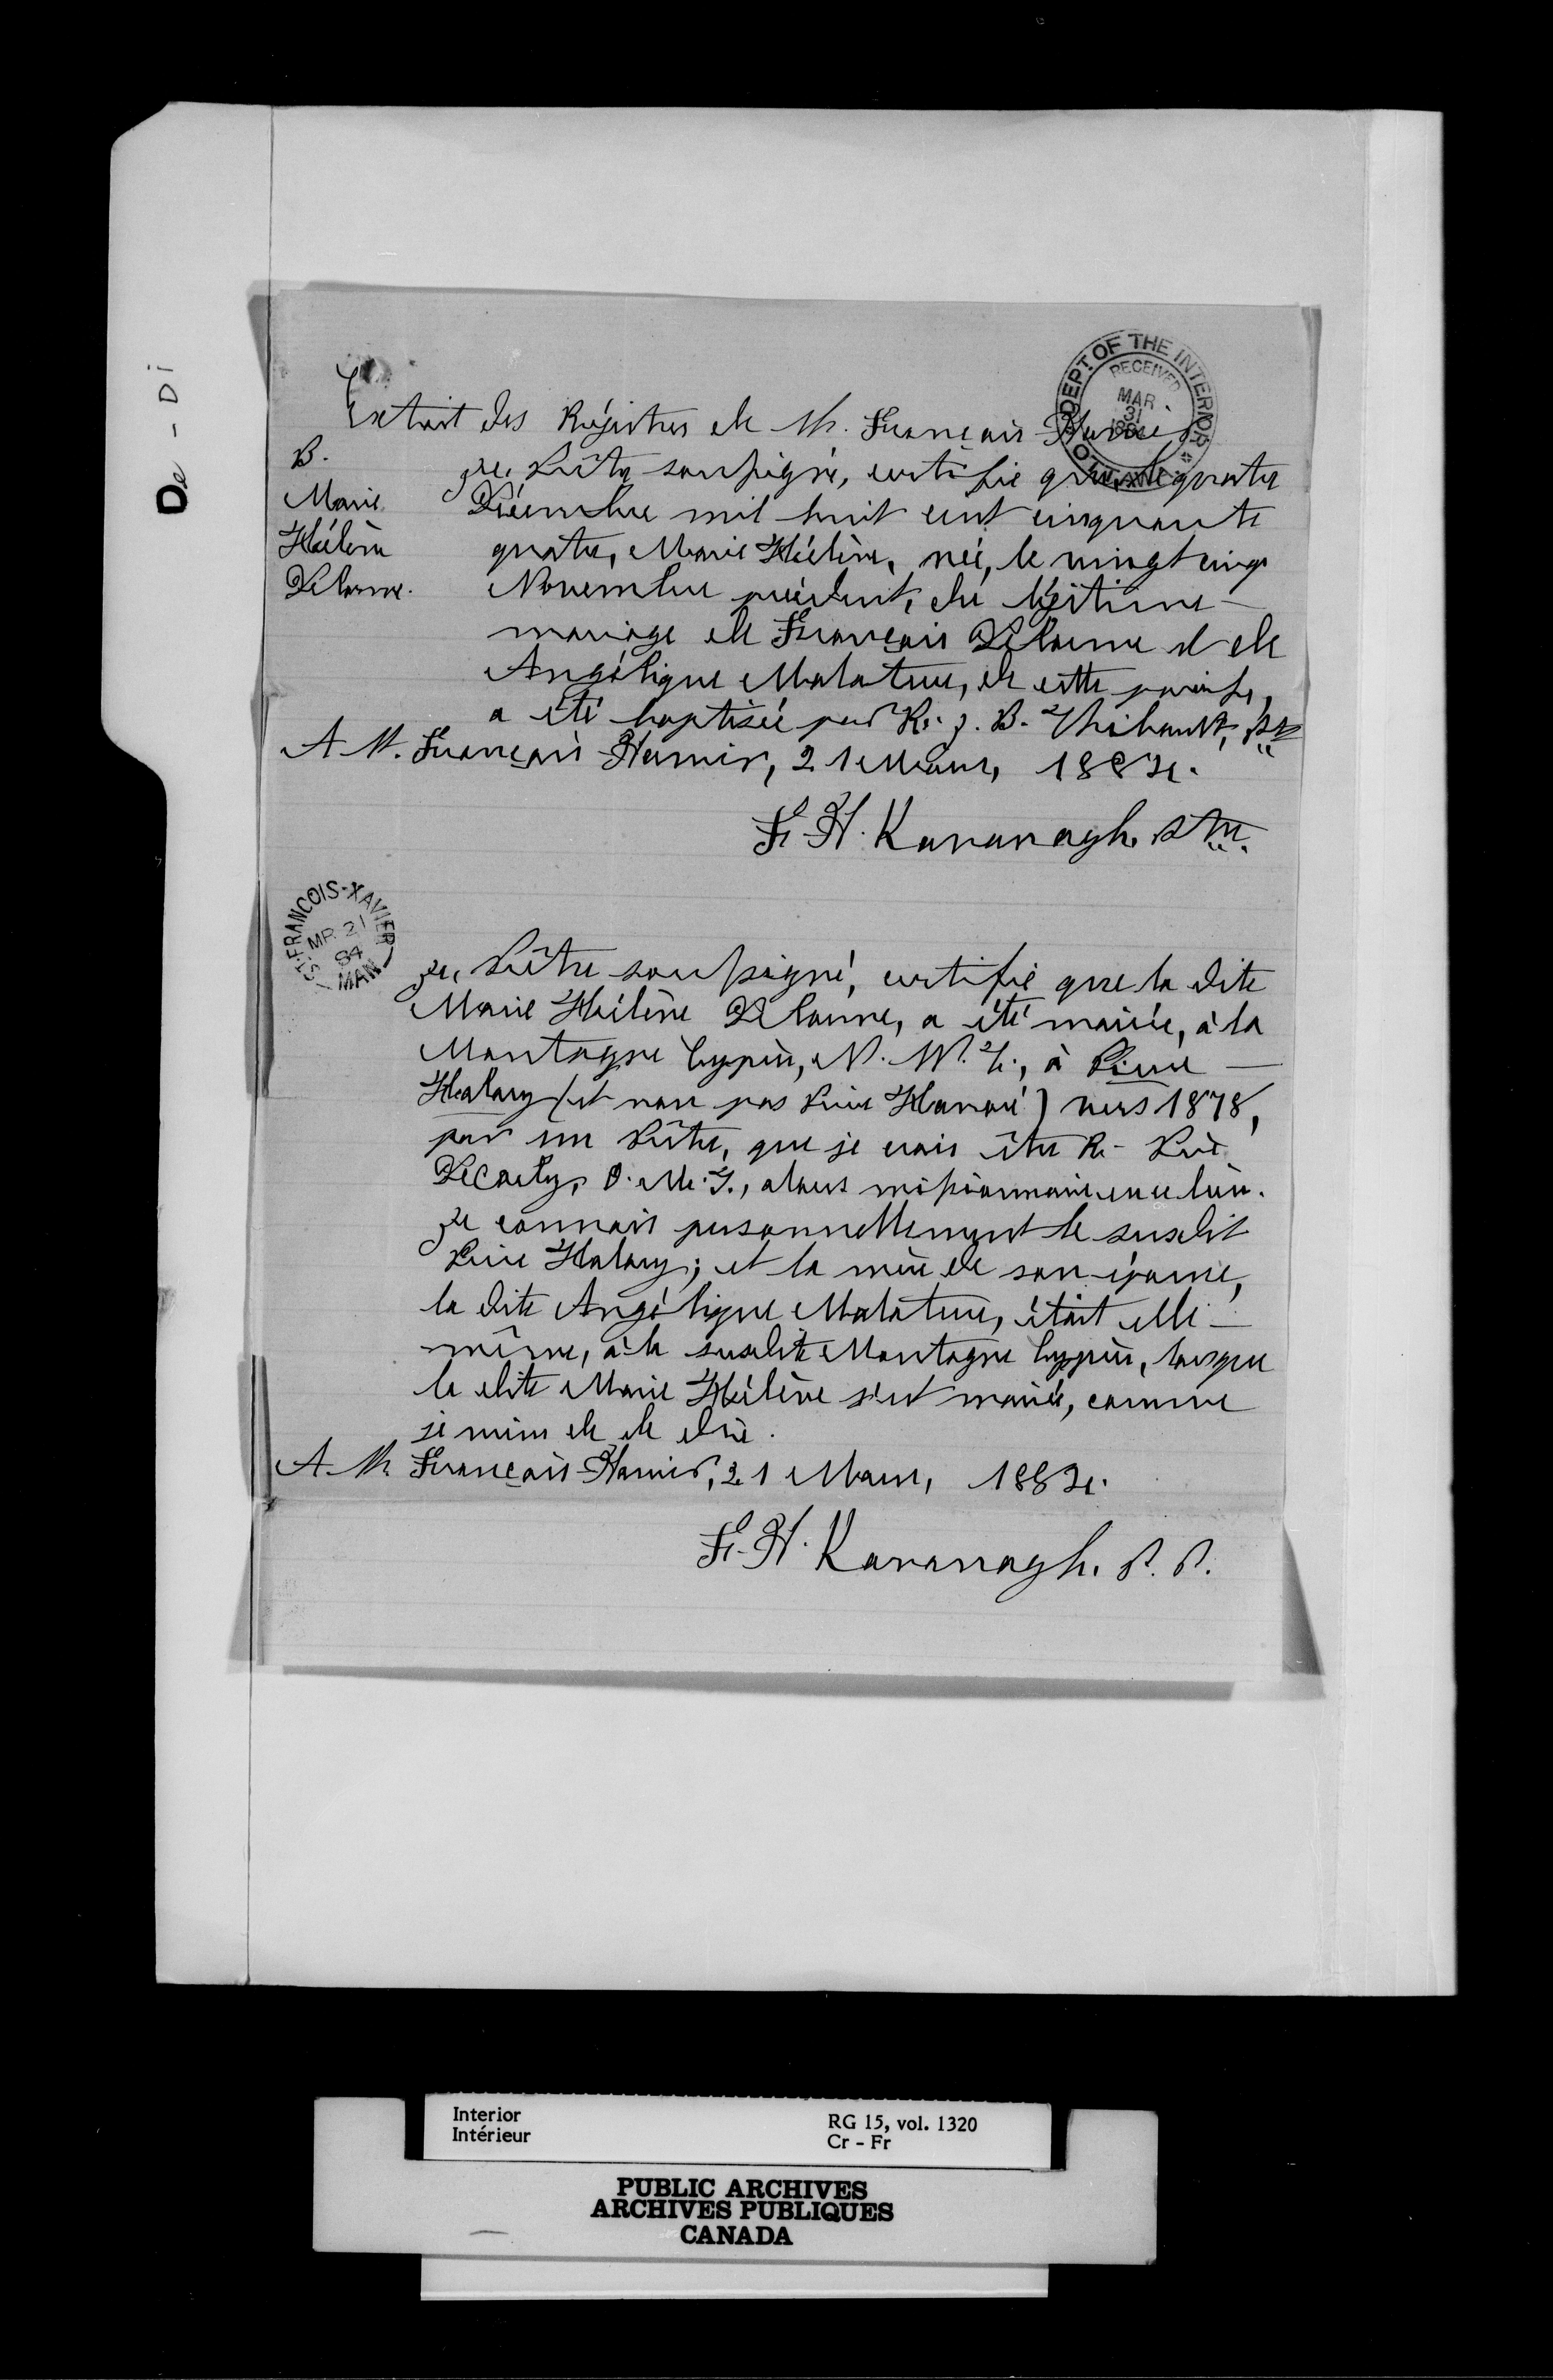 De - Di
DEPT. OF THE INTERIOR
RECEIVED
MAR
31
1884
OTTAWA
Extrait des Régistres de St. François-Xavier
B.
Marie
Hélène
Delorme.
Je, Prêtre soussigné, certifie que, le quatre
Décembre mil huit cent cinquante
quatre, Marie Hélène, née, le vingt cinq
Novembre précédent, du légitime
mariage de François Delorme et de
Angélique Malaterre, de cette paroisse,
a été baptisée par R. J. B. Thibault, Ptre
A St. François-Xavier, 21 Mars, 1884.
F. X. Kavanagh. Ptre.
ST. FRANCOIS-XAVIER
MR 21
84
MAN
Je, Prêtre soussigné, certifie que la dite
Marie Hélène Delorme, a été mariée, à la
Montagne Cyprès, N. W. T., à Pierre
Halary (et non pas Pierre Hanaré) vers 1878,
par un Prêtre, que je crois être R. Père
Decorby, O. M. I., alors missionnaire en ce lieu.
Je connais personnellement le susdit
Pierre Halary; et la mère de son épouse,
la dite Angélique Malaterre, était elle
même, à la susdite Montagne Cyprès, lorsque
la dite Marie Hélène s'est mariée, comme
je viens de le dire.
A St. François-Xavier, 21 Mars, 1884.
F. X. Kavanagh. P. P.
Interior
Intérieur
RG 15, vol. 1320
Cr - Fr
PUBLIC ARCHIVES
ARCHIVES PUBLIQUES
CANADA